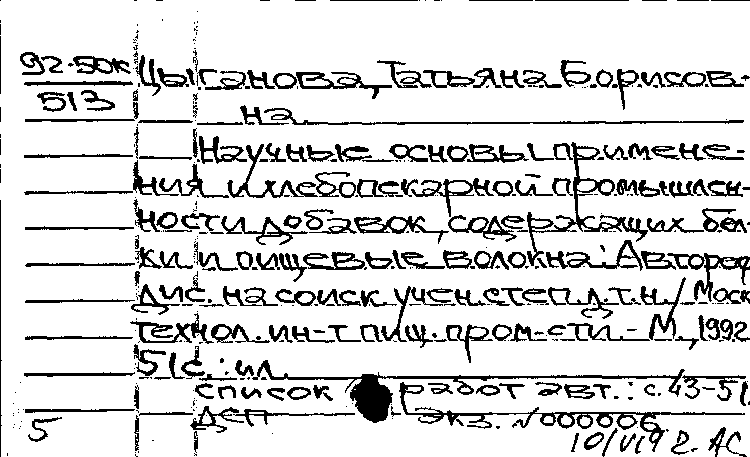 92-50к Цыганова, Татьяна Борисов-
513 на.
Научные основы примене-
ния и хлебопекарной промышлен-
ности добавок, содержащих бел-
ки и пищевые волокна: Автореф
дис. на соиск. учен. степ. д.т.н. / Моск
технол. ин-т пищ. пром-сти. - М., 1992
51с.: ил.
список работ авт.: с. 43-51.
ДСП экз. №000006
5 10/VI92 г. АС